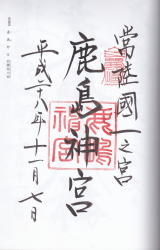 常陸國一之宮
鹿島神宮
平成二十八年十一月七日